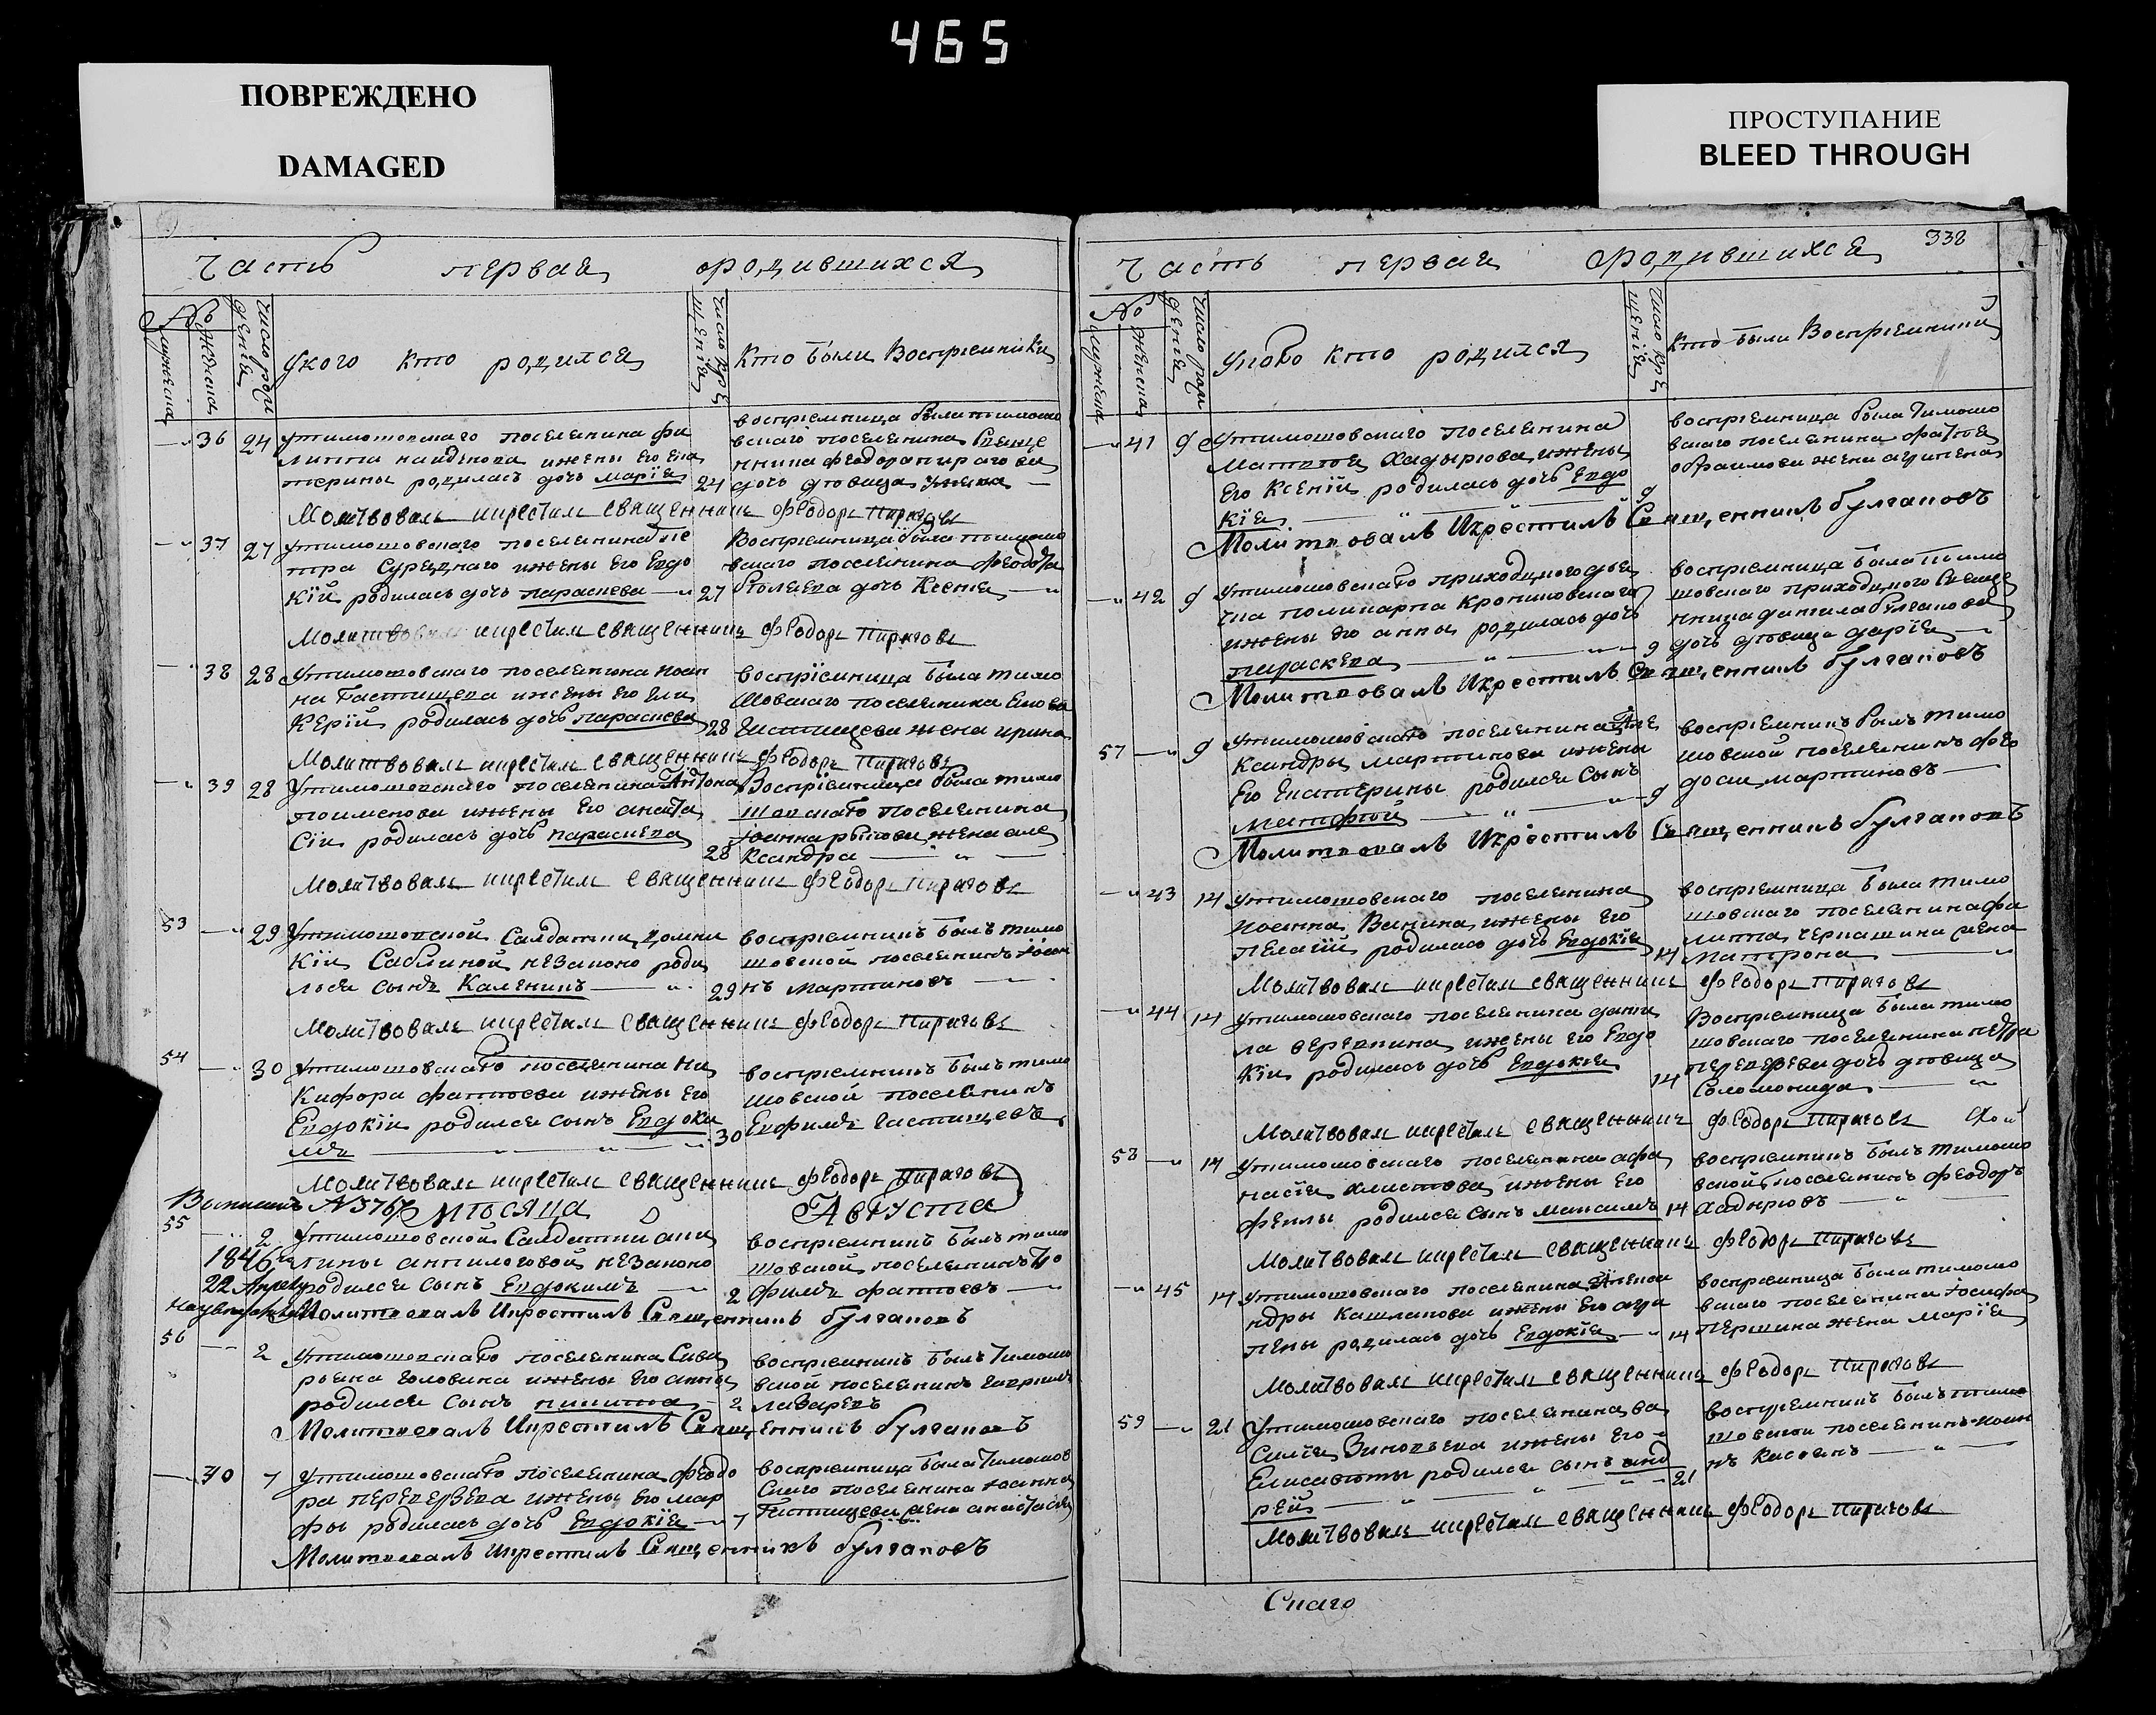 465
ПОВРЕЖДЕНО
DAMAGED
ПРОСТУПАНИЕ
BLEED THROUGH
Часть первая ородившихся
№
мужеска
женска
Число рож
деніе
Укого кто родился
Число кре
щеніе
Кто были Воспріемники
36 24 Утимошовскаго поселенина фи
липпа наиденова ижены его ека
терины родилась дочь Маріе 24
воспріемница была тимошо
вскаго поселенина Свеще
нника феодора пирагова
дочь девица
Молитвовалъ икрестилъ священникъ Феодоръ Пираговъ
37 27 Утимошовскаго поселенина Пе
тра ижены его Евдо
кіи родилась дочь параскева 27
Воспріемница была тимошо
вскаго поселенина феодота
дочь Ксеніе
Молитвовалъ икрестилъ священникъ Феодоръ Пираговъ
38 28 Утимошовскаго поселенина Иоан
на Гастищева ижены его Гли
керіи родилась дочь параскева 28
воспріемница была тимо
шовскаго поселенина
Гастищева жена ирина
Молитвовалъ икрестилъ священникъ Феодоръ Пираговъ
39 28 Утимошовскаго поселенина Антона
поименова ижены его анаста
сіи родилась дочь параскева 28
Воспріемница была тимо
шовскаго поселенина
Іоанна рылова жена але
ксандра
Молитвовалъ икрестилъ священникъ Феодоръ Пираговъ
53 29 Утимошовской Салдатки домни
кіи Саблиной незаконо роди
лься сынъ Каленикъ 29
воспріемникъ былъ тимо
шовской поселенинъ Іоан
нъ Мартиновъ
Молитвовалъ икрестилъ священникъ Феодоръ Пираговъ
54 30 Утимошовскаго поселенина Ни
кифора фатеева ижены его
Евдокіи родился сынъ Евдоки
мъ 30
воспріемникъ былъ тимо
шовской поселенинъ
Евфимъ Гастищевъ
Молитвовалъ икрестилъ священникъ Феодоръ Пираговъ
№ 5767 Мѣсяца Августа
1846
22 Апреля
55 2 Утимошовской Салдатки ака
лины анпилоговой незаконо
родился сынъ Евдокимъ 2
воспріемникъ былъ тимо
шовской поселенинъ Тро
фимъ фатеевъ
Молитвовалъ Икрестилъ Священникъ булгаковъ
56 2 Утимошовскаго поселенина Сава
Головина ижены его анны
родился сынъ никита 2
воспріемникъ былъ Тимошо
вской поселенинъ Гаврилъ
лазаревъ
Молитвовалъ Икрестилъ Священникъ булгаковъ
40 7 Утимошовскаго поселенина феодо
ра переверзева ижены его мар
фы родилась дочь Евдокіе 7
воспріемница была Тимошов
Скаго поселенина Іоанна
Гастищева жена анастасіе
Молитвовалъ Икрестилъ Священникъ булгаковъ
338
Часть первая ородившихся
№
мужеска
женска
Число рож
деніе
Укого кто родился
Число кре
щеніе
Кто были Воспріемники
41 9 Утимошовскаго поселенина
Матвея Хадырюва ижены
Его Ксеніи родилась дочь Евдо
кіе 9
воспріемница была Тимошо
вскаго поселенина фатея
ефраимова жена агрипена
Молитвовалъ Икрестилъ Священникъ булгаковъ
42 9 Утимошовскаго приходцкого дья
чка поликарпа Крониковскаго
ижены его анны родилась дочь
параскева 9
воспріемница была тимо
шовского приходцкого Свеще
нника данила булгакова
дочь девица даріе
Молитвовалъ Икрестилъ Священникъ булгаковъ
57 9 Утимошовскаго поселенина Але
ксандры мартинова ижены
Его Екатерины родился сынъ
Матфей 9
воспріемникъ былъ тимо
шовской поселенинъ фео
досии мартиновъ
Молитвовалъ Икрестилъ Священникъ булгаковъ
43 14 Утимошовскаго поселенина
Иоанна Ванина ижены его
пелагіи родилась дочь Евдокіе 14
воспріемница была тимо
шовскаго поселенина фи
липпа чернашина жена
Матрона
Молитвовалъ икрестилъ священникъ Феодоръ Пираговъ
44 14 Утимошовскаго поселенина дани
ла веревкина ижены его Евдо
кіи родилась дочь Евдокіе 14
Воспріемница была тимо
шовскаго поселенина петра
переверзева дочь девица
Соломонида
Молитвовалъ икрестилъ священникъ Феодоръ Пираговъ
58 14 Утимошовскаго поселенина афа
насіе хлистова ижены его
феклы родился сынъ максимъ 14
воспріемникъ былъ тимошо
вской поселенинъ феодоръ
Хадырювъ
Молитвовалъ икрестилъ священникъ Феодоръ Пираговъ
45 14 Утимошовскаго поселенина Алекса
ндры Кашлакова ижены его агри
пены родилась дочь Евдокіе 14
воспріемница была тимошо
вскаго поселенина Іосифа
першина жена Маріе
Молитвовалъ икрестилъ священникъ Феодоръ Пираговъ
59 21 Утимошовскаго поселенина ва
силіе Зиновьева ижены его
Елисаветы родился сынъ анд
рей 21
воспріемникъ былъ тимо
шовской поселенинъ иоан
нъ
Молитвовалъ икрестилъ священникъ Феодоръ Пираговъ
Скаго